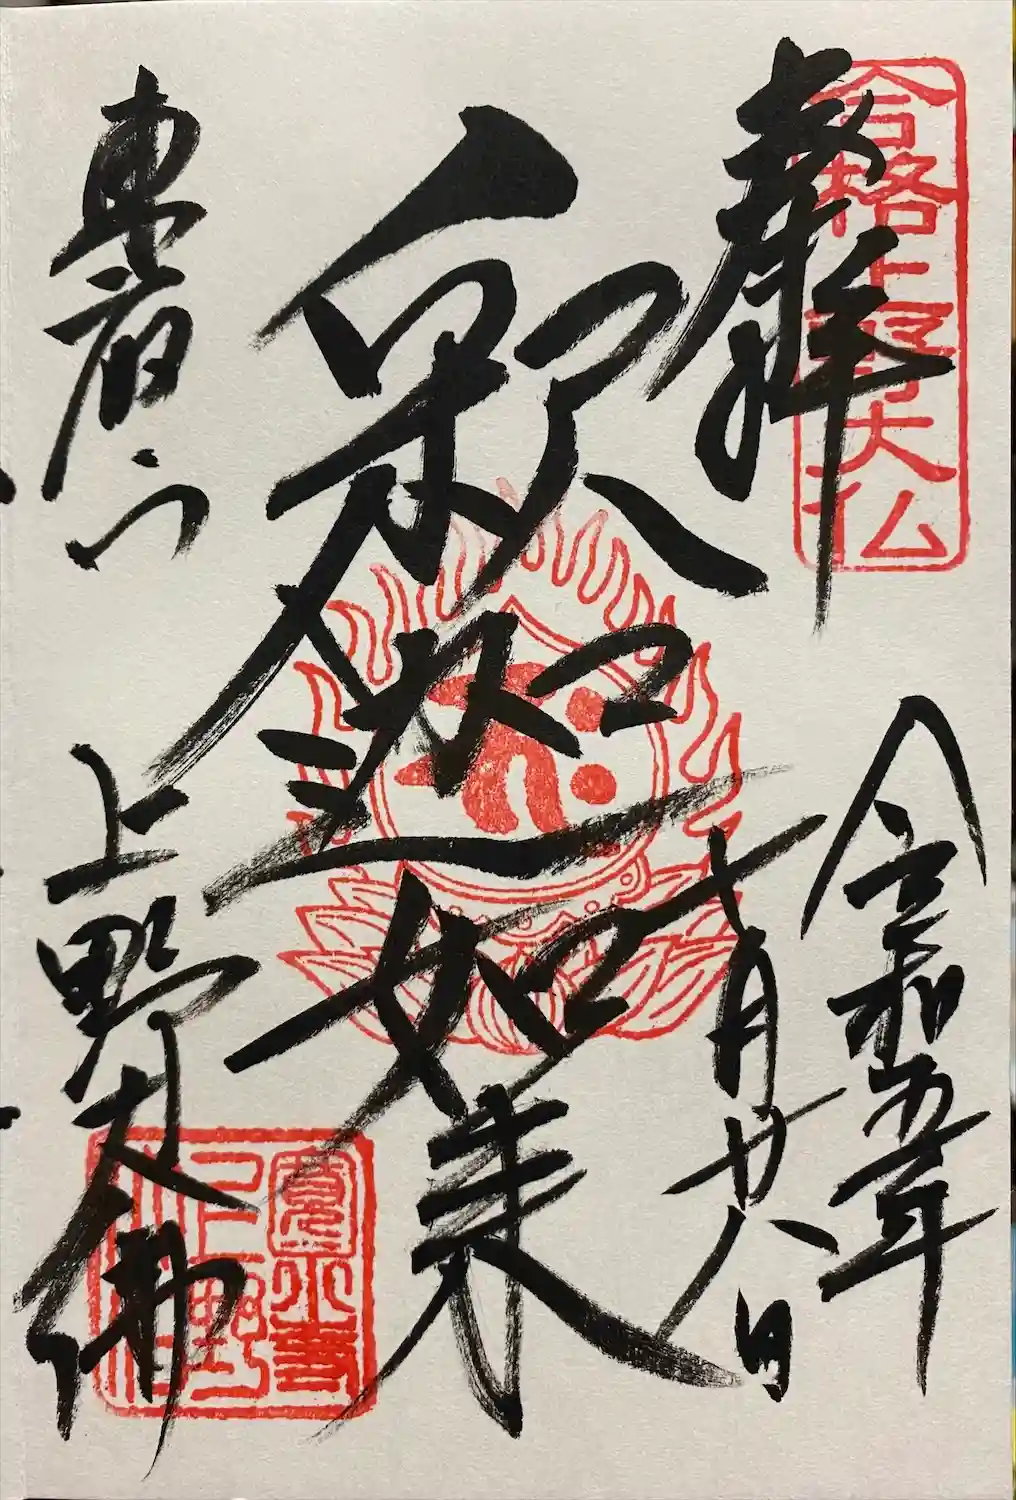 奉拝
合格上野大仏
令和五年
十月廿八日
釈迦如来
東叡山
上野大佛
寛永寺
上野大佛